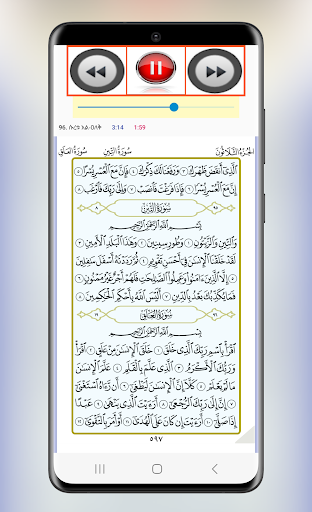 96. ሱረቱ አል-ዐለቅ 3:14 1:59
الجُزءُ الثَّلَاثُونَ سُورَةُ التِّين سُورَةُ العَلَق
ٱلَّذِىٓ أَنقَضَ ظَهْرَكَ ٣ وَرَفَعْنَا لَكَ ذِكْرَكَ ٤ فَإِنَّ مَعَ ٱلْعُسْرِ يُسْرًا ٥
إِنَّ مَعَ ٱلْعُسْرِ يُسْرًا ٦ فَإِذَا فَرَغْتَ فَٱنصَبْ ٧ وَإِلَىٰ رَبِّكَ فَٱرْغَب ٨
٩٥ سُورَةُ التِّينِ ٨
بِسْمِ ٱللَّهِ ٱلرَّحْمَٰنِ ٱلرَّحِيمِ
وَٱلتِّينِ وَٱلزَّيْتُونِ ١ وَطُورِ سِينِينَ ٢ وَهَٰذَا ٱلْبَلَدِ ٱلْأَمِينِ ٣
لَقَدْ خَلَقْنَا ٱلْإِنسَٰنَ فِىٓ أَحْسَنِ تَقْوِيمٍ ٤ ثُمَّ رَدَدْنَٰهُ أَسْفَلَ سَٰفِلِينَ
٥ إِلَّا ٱلَّذِينَ ءَامَنُوا۟ وَعَمِلُوا۟ ٱلصَّٰلِحَٰتِ فَلَهُمْ أَجْرٌ غَيْرُ مَمْنُونٍ
٦ فَمَا يُكَذِّبُكَ بَعْدُ بِٱلدِّينِ ٧ أَلَيْسَ ٱللَّهُ بِأَحْكَمِ ٱلْحَٰكِمِينَ ٨
٩٦ سُورَةُ العَلَقِ ١٩
بِسْمِ ٱللَّهِ ٱلرَّحْمَٰنِ ٱلرَّحِيمِ
ٱقْرَأْ بِٱسْمِ رَبِّكَ ٱلَّذِى خَلَقَ ١ خَلَقَ ٱلْإِنسَٰنَ مِنْ عَلَقٍ ٢ ٱقْرَأْ
وَرَبُّكَ ٱلْأَكْرَمُ ٣ ٱلَّذِى عَلَّمَ بِٱلْقَلَمِ ٤ عَلَّمَ ٱلْإِنسَٰنَ
مَا لَمْ يَعْلَمْ ٥ كَلَّآ إِنَّ ٱلْإِنسَٰنَ لَيَطْغَىٰٓ ٦ أَن رَّءَاهُ ٱسْتَغْنَىٰٓ
٧ إِنَّ إِلَىٰ رَبِّكَ ٱلرُّجْعَىٰٓ ٨ أَرَءَيْتَ ٱلَّذِى يَنْهَىٰ ٩ عَبْدًا
إِذَا صَلَّىٰٓ ١٠ أَرَءَيْتَ إِن كَانَ عَلَى ٱلْهُدَىٰٓ ١١ أَوْ أَمَرَ بِٱلتَّقْوَىٰٓ ١٢
٥٩٧